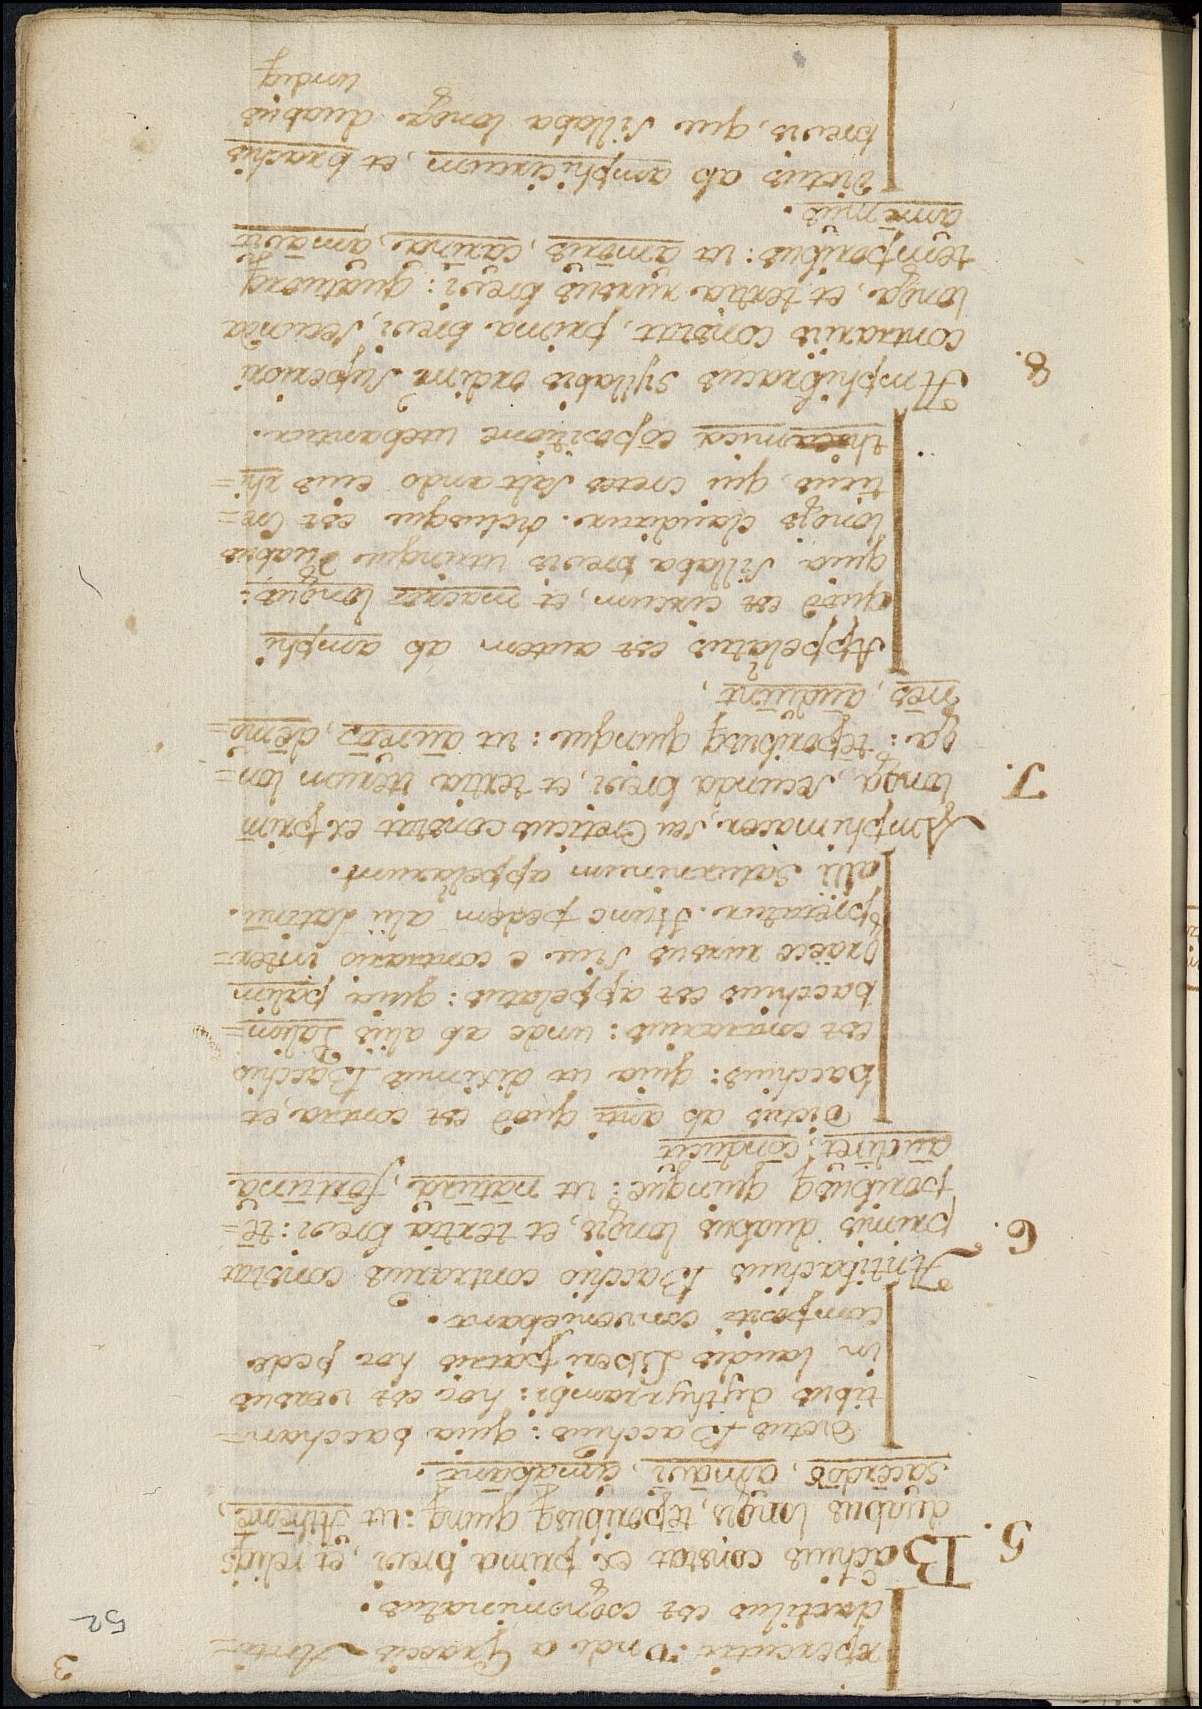 3
52
repercutit: Vnde a Græcis Anti=
dactilus est cognominatus.
5. Bacchius constat ex prima brevi, et reliqs
duabus longis, tēporibusq quinq: ut Athenæ,
sacerdos, amavi, amabant.
Dictus Bacchius: quia bacchan=
tibus dythyrambi: hoc est versus
in laudis Liberi patris hoc pede
compositi conveniebant.
6. Antibachius Bacchio contrarius constat
primis duabus longis, et tertia brevi: tē=
poribusq quinque: ut natura, fortuna
audiret, conducit
Dictus ab anti quod est contra, et
bacchius: quia ut diximus Bacchio
est contrarius: unde ab aliis Palim=
bacchius est appelatus: quia palim
græce rursus sive e contrario inter=
pretatur. Hunc pedem alii Latinū.
alii Saturninum appelarunt.
7. Amphimacer, seu Creticus constat ex prim
longa, secunda brevi, et tertia iterum lon=
ga: tēporibusq quinque: ut aureæ, dæmo=
nes, audiunt,
Appelatus est autem ab amphi
quod est circum, et macros longus:
quia sillaba brevis utrinque duabus
longis clauditur. dictusque est Cre=
ticus, qui cretes saltando eius rhi=
thmica cōpositione utebantur.
8. Amphibracus syllabis ordini superiori
contrariis constat, prima brevi, secunda
longa, et tertia rursus brevi: quatuorq
temporibus: ut amoris, carina, amavit
amemus.
Dictus ab amphi circum, et brachis
brevis, que sillaba longa duabus
undiq